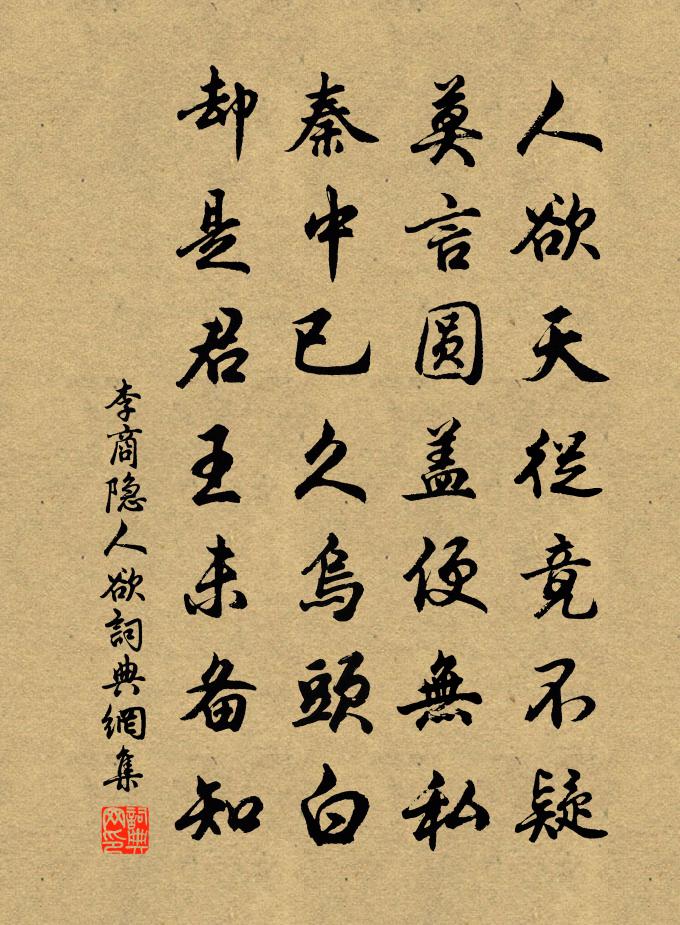 人欲天從竟不疑
莫言圓盖便無私
秦中已久烏頭白
却是君王未备知
李商隐人欲詞典網集
詞典网印